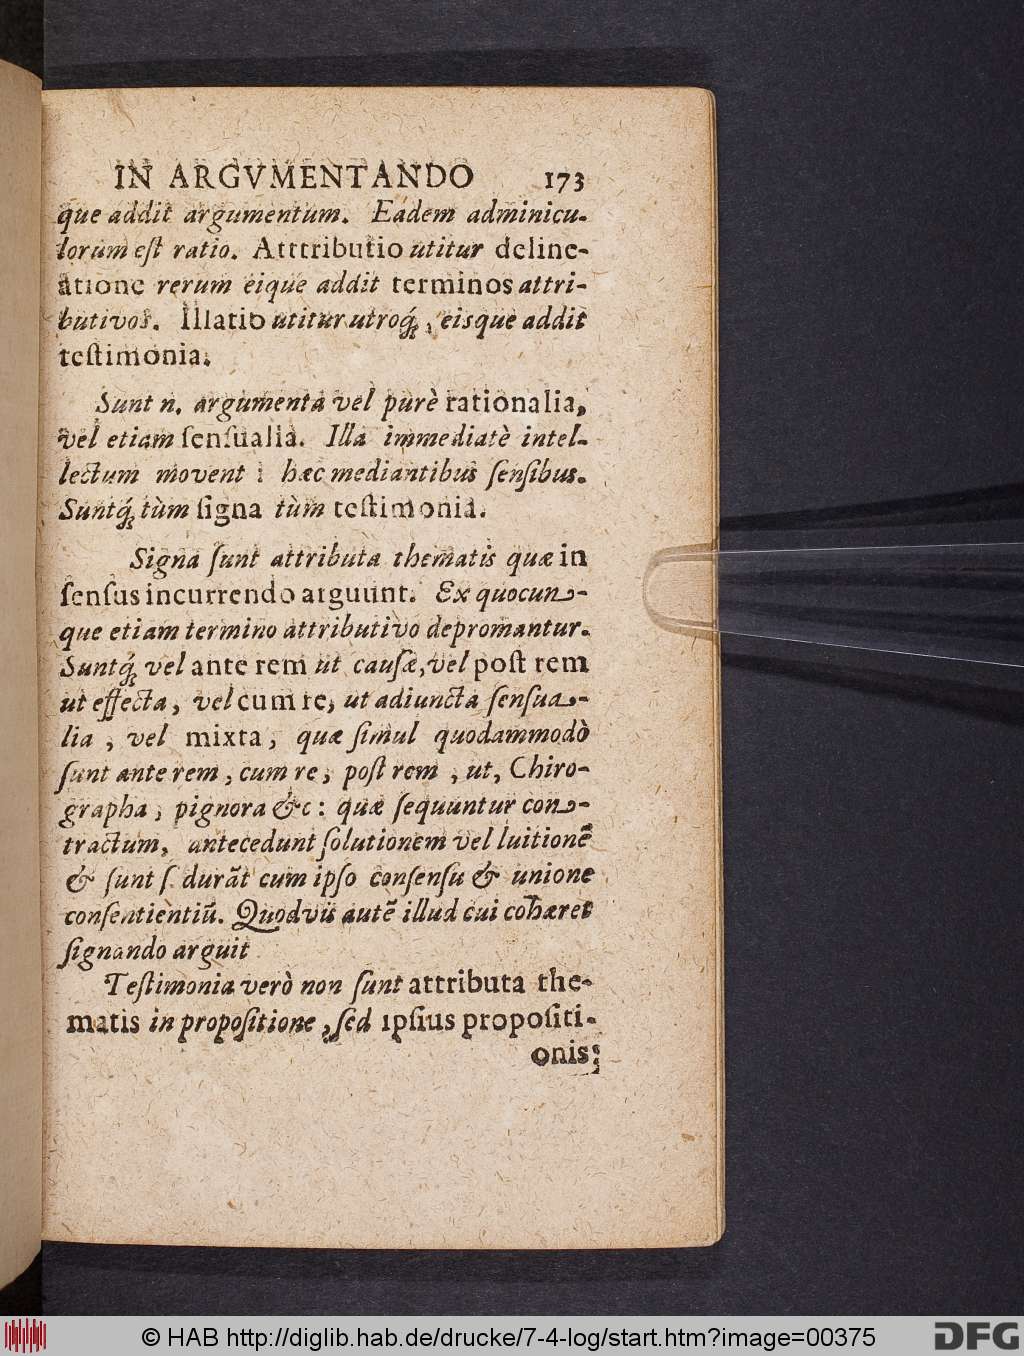 IN ARGVMENTANDO 173
que addit argumentum. Eadem adminicu-
lorum est ratio. Atttributio utitur deline-
atione rerum eique addit terminos attri-
butivos. Illatio utitur utroq́;, eisque addit
testimonia.
Sunt n. argumenta vel purè rationalia,
vel etiam sensualia. Illa immediatè intel-
lectum movent: hæc mediantibus sensibus.
Suntq́; tùm signa tùm testimonia.
Signa sunt attributa thematis quæ in
sensus incurrendo arguunt. Ex quocun-
que etiam termino attributivo depromantur.
Suntq́; vel ante rem ut causæ, vel post rem
ut effecta, vel cum re, ut adiuncta sensua-
lia, vel mixta, quæ simul quodammodò
sunt ante rem, cum re, post rem, ut, Chiro-
grapha, pignora &c: quæ sequuntur con-
tractum, antecedunt solutionem vel luitionẽ
& sunt s. durãt cum ipso consensu & unione
consentientiũ. Quodvis autẽ illud cui cohæret
signando arguit
Testimonia verò non sunt attributa the-
matis in propositione, sed ipsius propositi-
onis;
© HAB http://diglib.hab.de/drucke/7-4-log/start.htm?image=00375
DFG